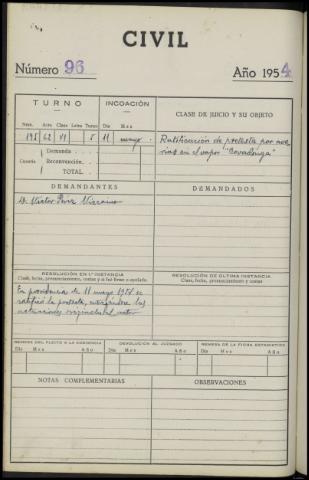 CIVIL
Número 96 Año 1954
TURNO INCOACIÓN CLASE DE JUICIO Y SU OBJETO
Núm. Acto Clase Letra Turno Día Mes
195 62 11 5 11 mayo
Ratificación de protesta por ave
rias en el vapor "Covadonga"
Cuantía Demanda. . .
Reconvención. . .
TOTAL. . .
DEMANDANTES DEMANDADOS
D. Victor Perez Vizcaino
RESOLUCIÓN EN 1.ª INSTANCIA
Clase, fecha, pronunciamientos, costas y si fué firme o apelada.
RESOLUCIÓN DE ÚLTIMA INSTANCIA
Clase, fecha, pronunciamientos y costas
En providencia de 11 mayo 1954 se
ratificó la protesta,
actuaciones originales al
REMESA DEL PLEITO A LA AUDIENCIA DEVOLUCIÓN AL JUZGADO REMESA DE LA FICHA ESTADÍSTICA
Día Mes Año Día Mes Año Día Mes Año
NOTAS COMPLEMENTARIAS OBSERVACIONES